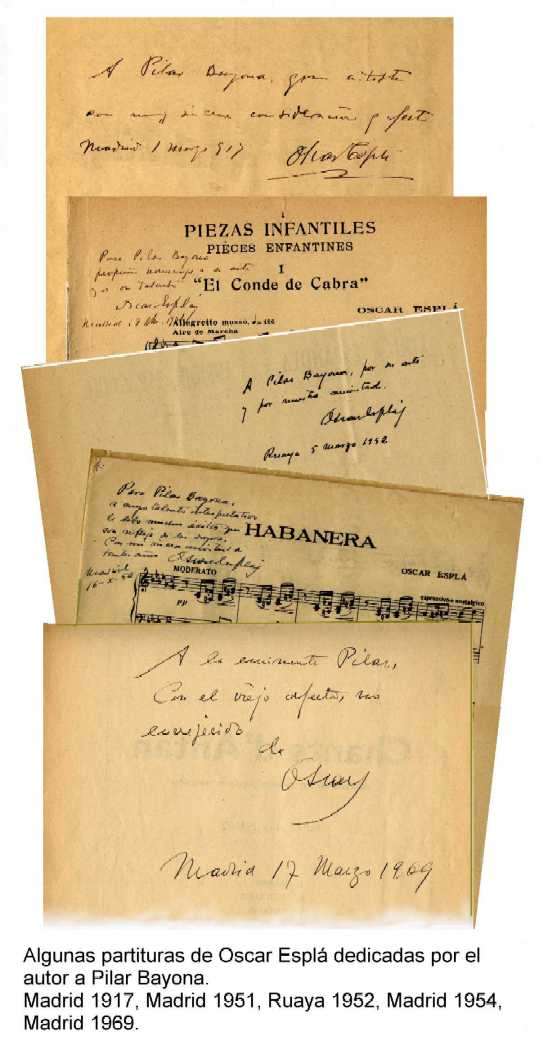 A Pilar Bayona, gran artista
con muy sincera consideración y afecto
Madrid 1 marzo 917
Oscar Esplá
1
PIEZAS INFANTILES
PIÈCES ENFANTINES
Para Pilar Bayona
homenaje a su arte
y a su talento
I
"El Conde de Cabra"
Oscar Esplá
OSCAR ESPLÁ
Allegretto mosso
Aire de Marcha
A Pilar Bayona, por su arte
y por nuestra amistad.
Oscar Esplá
Ruaya 5 marzo 1952
Para Pilar Bayona,
a cuyo talento interpretativo
le debo muchos éxitos que
son reflejo de los suyos.
Con mi
Oscar Esplá
HABANERA
Madrid
16-X-54
MODERATO
OSCAR ESPLÁ
Espressivo e nostalgico
pp
A la eminente Pilar,
Con el viejo afecto, no
envejecido
de
Oscar
Madrid 17 Marzo 1969
Chants d'Antan
Algunas partituras de Oscar Esplá dedicadas por el
autor a Pilar Bayona.
Madrid 1917, Madrid 1951, Ruaya 1952, Madrid 1954,
Madrid 1969.